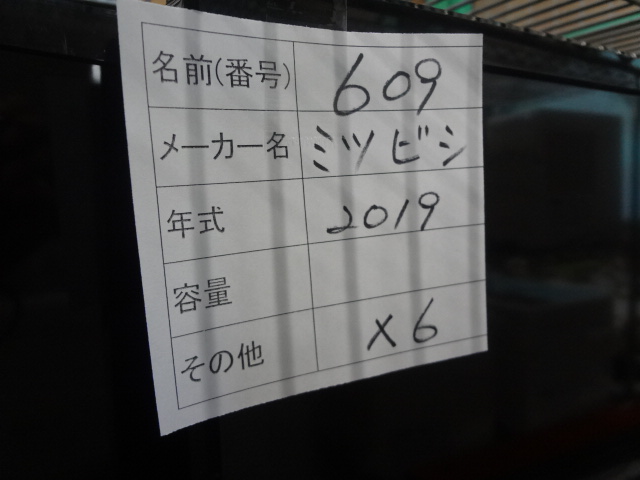 名前(番号) 609
メーカー名 ミツビシ
年式 2019
容量
その他 x6